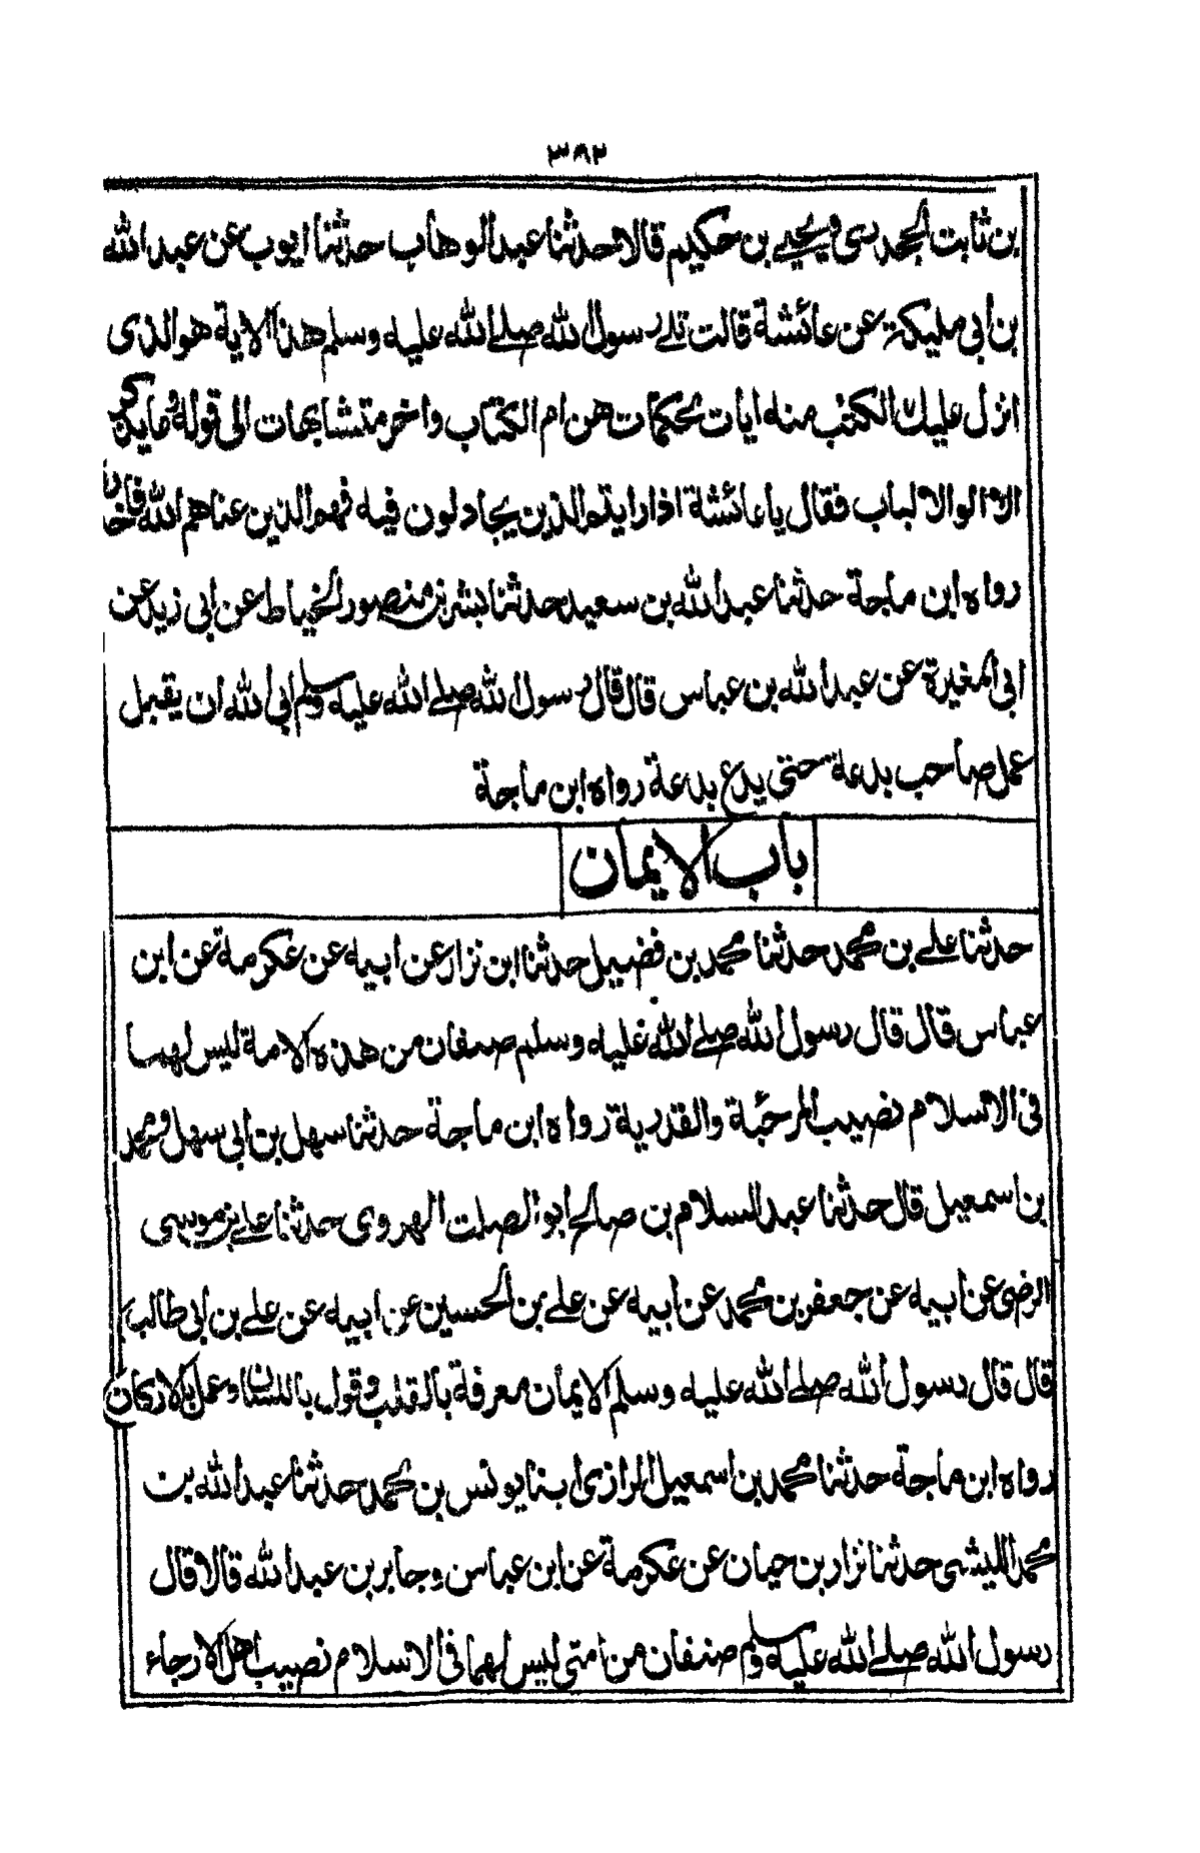 ٣٨٢
بن ثابت الجحدرى ويحيے بن حكيم قالا حدثنا عبد الوهاب حدثنا ايوب عن عبد الله
بن ابي مليكة عن عائشة قالت تلے رسول الله صلے الله عليه وسلم هذا الاية هو الذى
انزل عليك الكتب منه ايات محكمات هن ام الكتاب واخر متشابهات الى قوله وما يذكر
الا الوالالباب فقال يا عائشة اذا رايتم الذين يجادلون فيه فهم الذين عناهم الله
رواه ابن ماجة حدثنا عبد الله بن سعيد حدثنا بشر بن منصور الخياط عن ابى زيد عن
ابى المغيرة عن عبد الله بن عباس قال قال رسول الله صلے الله عليه وسلم ابى الله ان يقبل
عمل صاحب بدعة حتى يدع بدعة رواه ابن ماجة
باب الايمان
حدثنا علے بن محمد حدثنا محمد بن فضيل حدثنا ابن نزار عن ابيه عن عكرمة عن ابن
عباس قال قال رسول الله صلے الله عليه وسلم صنفان من هذه الامة ليس لهما
فى الاسلام نصيب المرجئة والقدرية رواه ابن ماجة حدثنا سهل بن ابى سهل ومحمد
بن اسمعيل قال حدثنا عبد السلام بن صالح ابو الصلت الهروى حدثنا علے بن موسى
الرضى عن ابيه عن جعفر بن محمد عن ابيه عن علے بن الحسين عن ابيه عن علے بن ابى طالب
قال قال رسول الله صلے الله عليه وسلم الايمان معرفة بالقلب وقول باللسان وعمل بالاركان
رواه ابن ماجة حدثنا محمد بن اسمعيل الرازى ابنا يونس بن محمد حدثنا عبد الله بن
محمد الليثى حدثنا نزار بن حيان عن عكرمة عن ابن عباس وجابر بن عبد الله قالا قال
رسول الله صلے الله عليه وسلم صنفان من امتى ليس لهما فى الاسلام نصيب اهل الارجاء